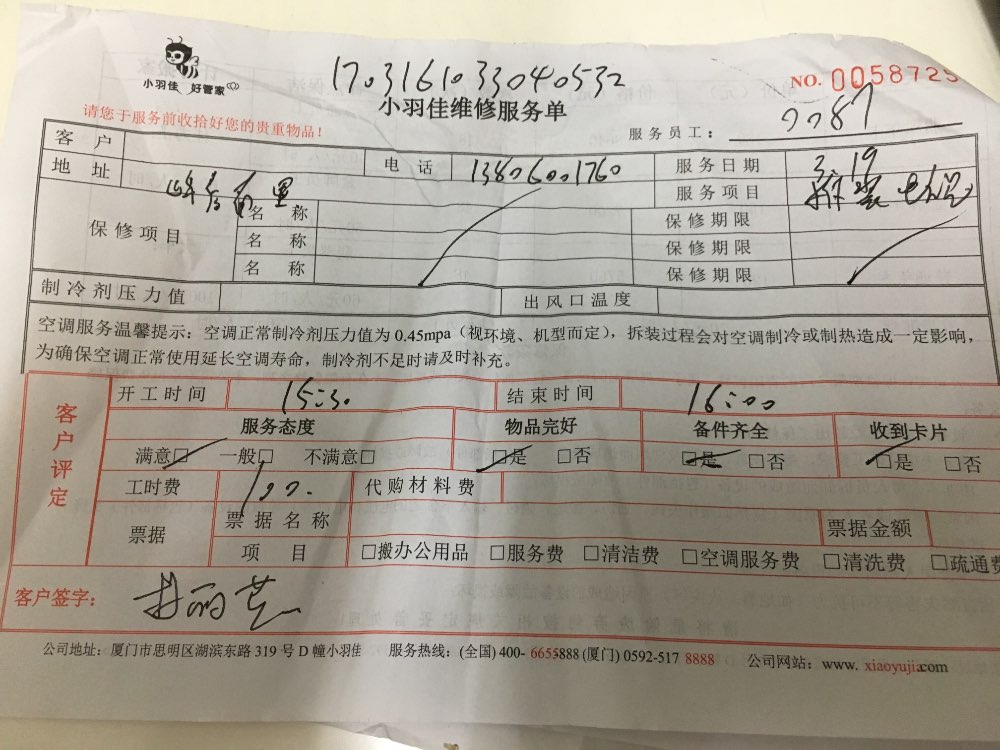 小羽佳 好管家
1703161033040532
NO. 0058725
小羽佳维修服务单
请您于服务前收拾好您的贵重物品！
服务员工：
客户 电话 13806001760 服务日期 3.19
地址 服务项目
保修项目 名称 保修期限
名称 保修期限
名称 保修期限
制冷剂压力值 出风口温度
空调服务温馨提示：空调正常制冷剂压力值为 0.45mpa（视环境、机型而定），拆装过程会对空调制冷或制热造成一定影响，
为确保空调正常使用延长空调寿命，制冷剂不足时请及时补充。
客户评定
开工时间 15:30 结束时间 16:00
服务态度 物品完好 备件齐全 收到卡片
满意□ 一般□ 不满意□ □是 □否 □是 □否 □是 □否
工时费 100. 代购材料费
票据 票据名称 票据金额
项目 □搬办公用品 □服务费 □清洁费 □空调服务费 □清洗费 □疏通费
客户签字：
公司地址：厦门市思明区湖滨东路 319 号 D 幢小羽佳 服务热线：(全国) 400- 6655888 (厦门) 0592-517 8888 公司网站：www. xiaoyujia.com